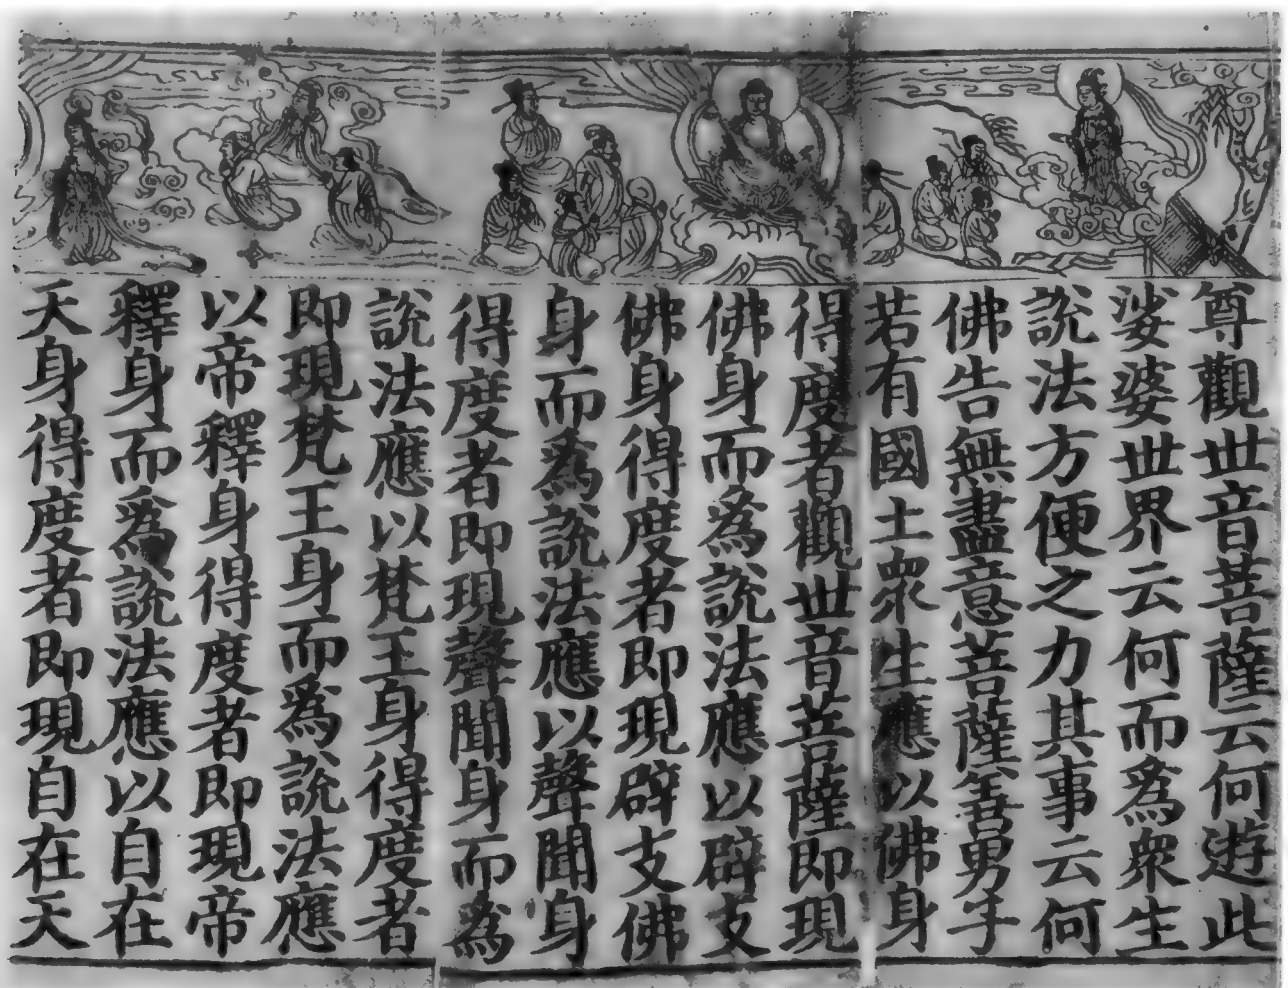 尊觀世音菩薩云何遊此
娑婆世界云何而爲衆生
說法方便之力其事云何
佛告無盡意菩薩善男子
若有國土衆生應以佛身
得度者觀世音菩薩即現
佛身而爲說法應以辟支
佛身得度者即現辟支佛
身而爲說法應以聲聞身
得度者即現聲聞身而爲
說法應以梵王身得度者
即現梵王身而爲說法應
以帝釋身得度者即現帝
釋身而爲說法應以自在
天身得度者即現自在天